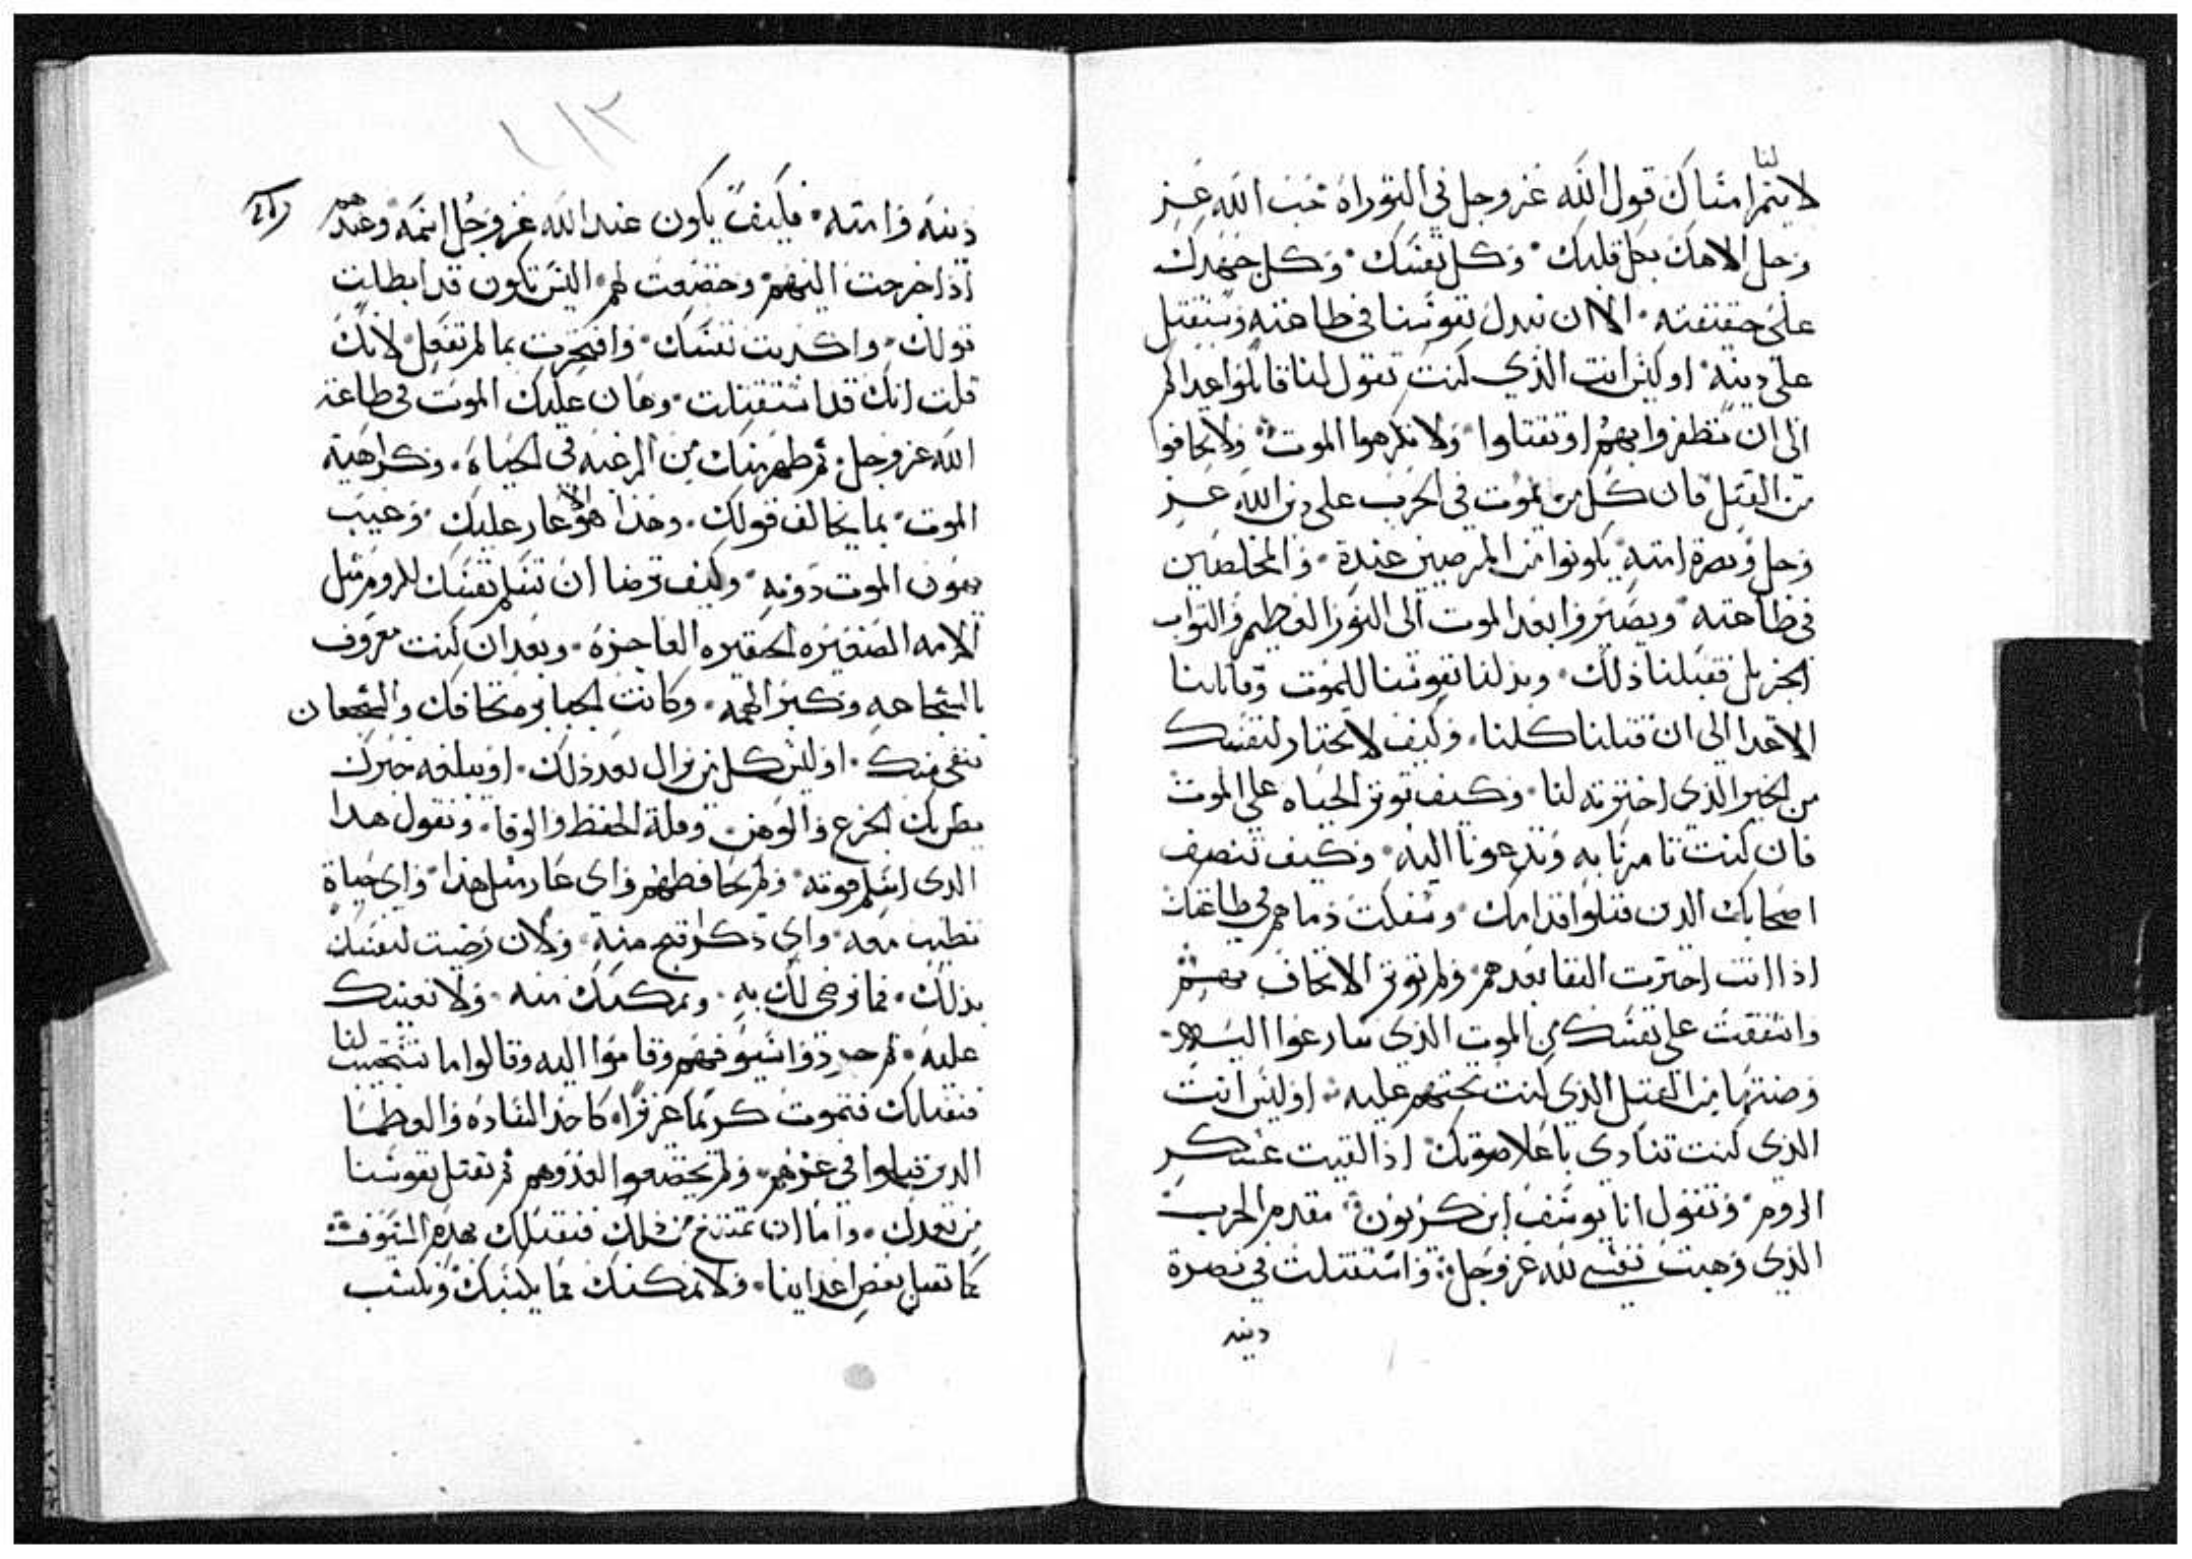 لنا
لا يتم امناك قول الله عز وجل في التوراة تحب الله عز
وجل الاهك بكل قلبك وكل نفسك وكل جهدك
على حقيقته الا ان نبدل نفوسنا في طاعته ونستقتل
على دينه اوليس انت الذي كنت تقول لنا قاتلوا اعداكم
الى ان تظفروا بهم او تقتلوا ولا تكرهوا الموت ولا تخافوا
من القتل فان كل من يموت في الحرب على دين الله عز
وجل ونصرة امته يكونوا من المرضيين عنده والمخلصين
في طاعته ويصيروا بعد الموت الى النور العظيم والثواب
الجزيل فقبلنا ذلك وبذلنا نفوسنا للموت وقاتلنا
الاعدا الى ان قتلنا كلنا وكيف لا تختار لنفسك
من الخير الذي اخترته لنا وكيف توثر الحياه على الموت
فان كنت تامرنا به وتدعونا اليه وكيف تنصف
اصحابك الدين قتلوا قدامك وسفكت دماهم في طاعتك
اذا انت اخترت البقا بعدهم ولم توثر الالحاق بهم
واشفقت على نفسك من الموت الذي سارعوا اليه
وصنتها من القتل الذي كنت تحثهم عليه اوليس انت
الذي كنت تنادي باعلا صوتك اذا لقيت عسكر
الروم وتقول انا يوسف ابن كريون مقدم الحرب
الذي وهبت نفسي لله عز وجل واستقتلت في نصرة
دينه
١١٣
دينه وامته فكيف يكون عند الله عز وجل اسمه وعندهم
اذا خرجت اليهم وخضعت لهم اليس تكون قد ابطلت
قولك واكذبت نفسك وافتخرت بما لم تفعل لانك
قلت انك قد استقتلت وهان عليك الموت في طاعة
الله عز وجل ثم ظهر منك من الرغبه في الحياة وكراهية
الموت بما يخالف قولك وهذا هو عار عليك وعيب
يهون الموت دونه وكيف ترضا ان تسلم نفسك للروم مثل
الامه الصغيره الحقيره العاجزه وبعد ان كنت معروف
بالشجاعه وكبر الهمه وكانت الجبابر تخافك والشجعان
تتقي منك اوليس كل من يراك بعد ذلك او يبلغه خبرك
يظن بك الجزع والوهن وقلة الحفظ والوفا ويقول هدا
الدي اسلم قومه ولم يحافظهم واي عار مثل هذا واي حياة
تطيب معه واي ذكر اقبح منه ولان رضيت لنفسك
بذلك فما نرضى لك به ونمكنك منه ولا نعينك
عليه ثم جردوا سيوفهم وقاموا اليه وقالوا اما تستجيب لنا
فنقتلك فتموت كريما عزيزا كاحد الساده والعظما
الدين قتلوا في عزهم ولم يخضعوا لعدوهم ثم نقتل نفوسنا
من بعدك واما ان تمتنع من ذلك فنقتلك بهده السيوف
كما نقتل بعض اعداينا ولا نمكنك مما يشينك ونكسب